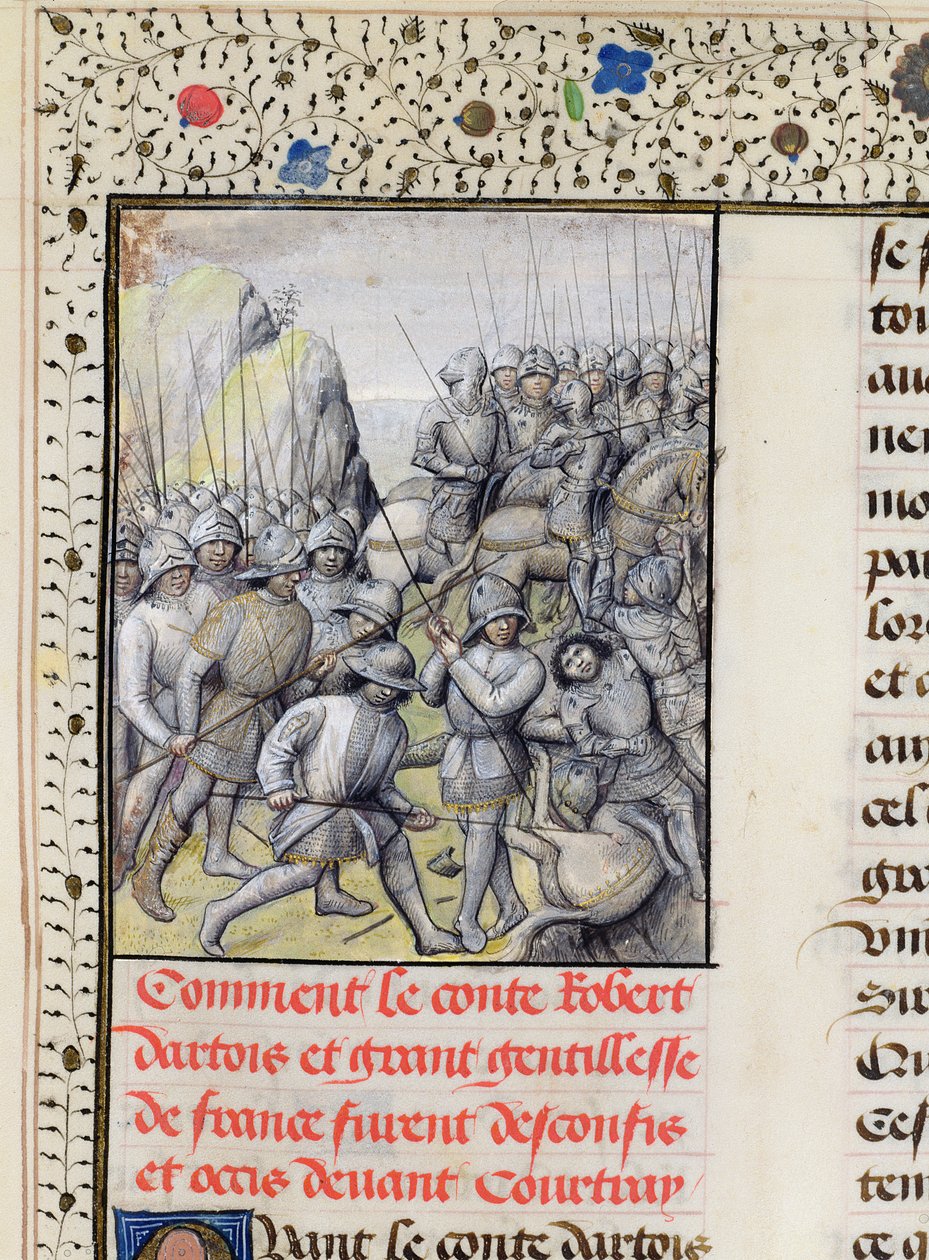 Comment le conte Robert
dartois et grant gentillesse
de france furent desconfis
et occis devant Courtray
Quant le conte dartois
se s
tou
aua
ner
mo
par
lore
et
auy
cel
gra
vin
Sir
Ces
tem
ce q